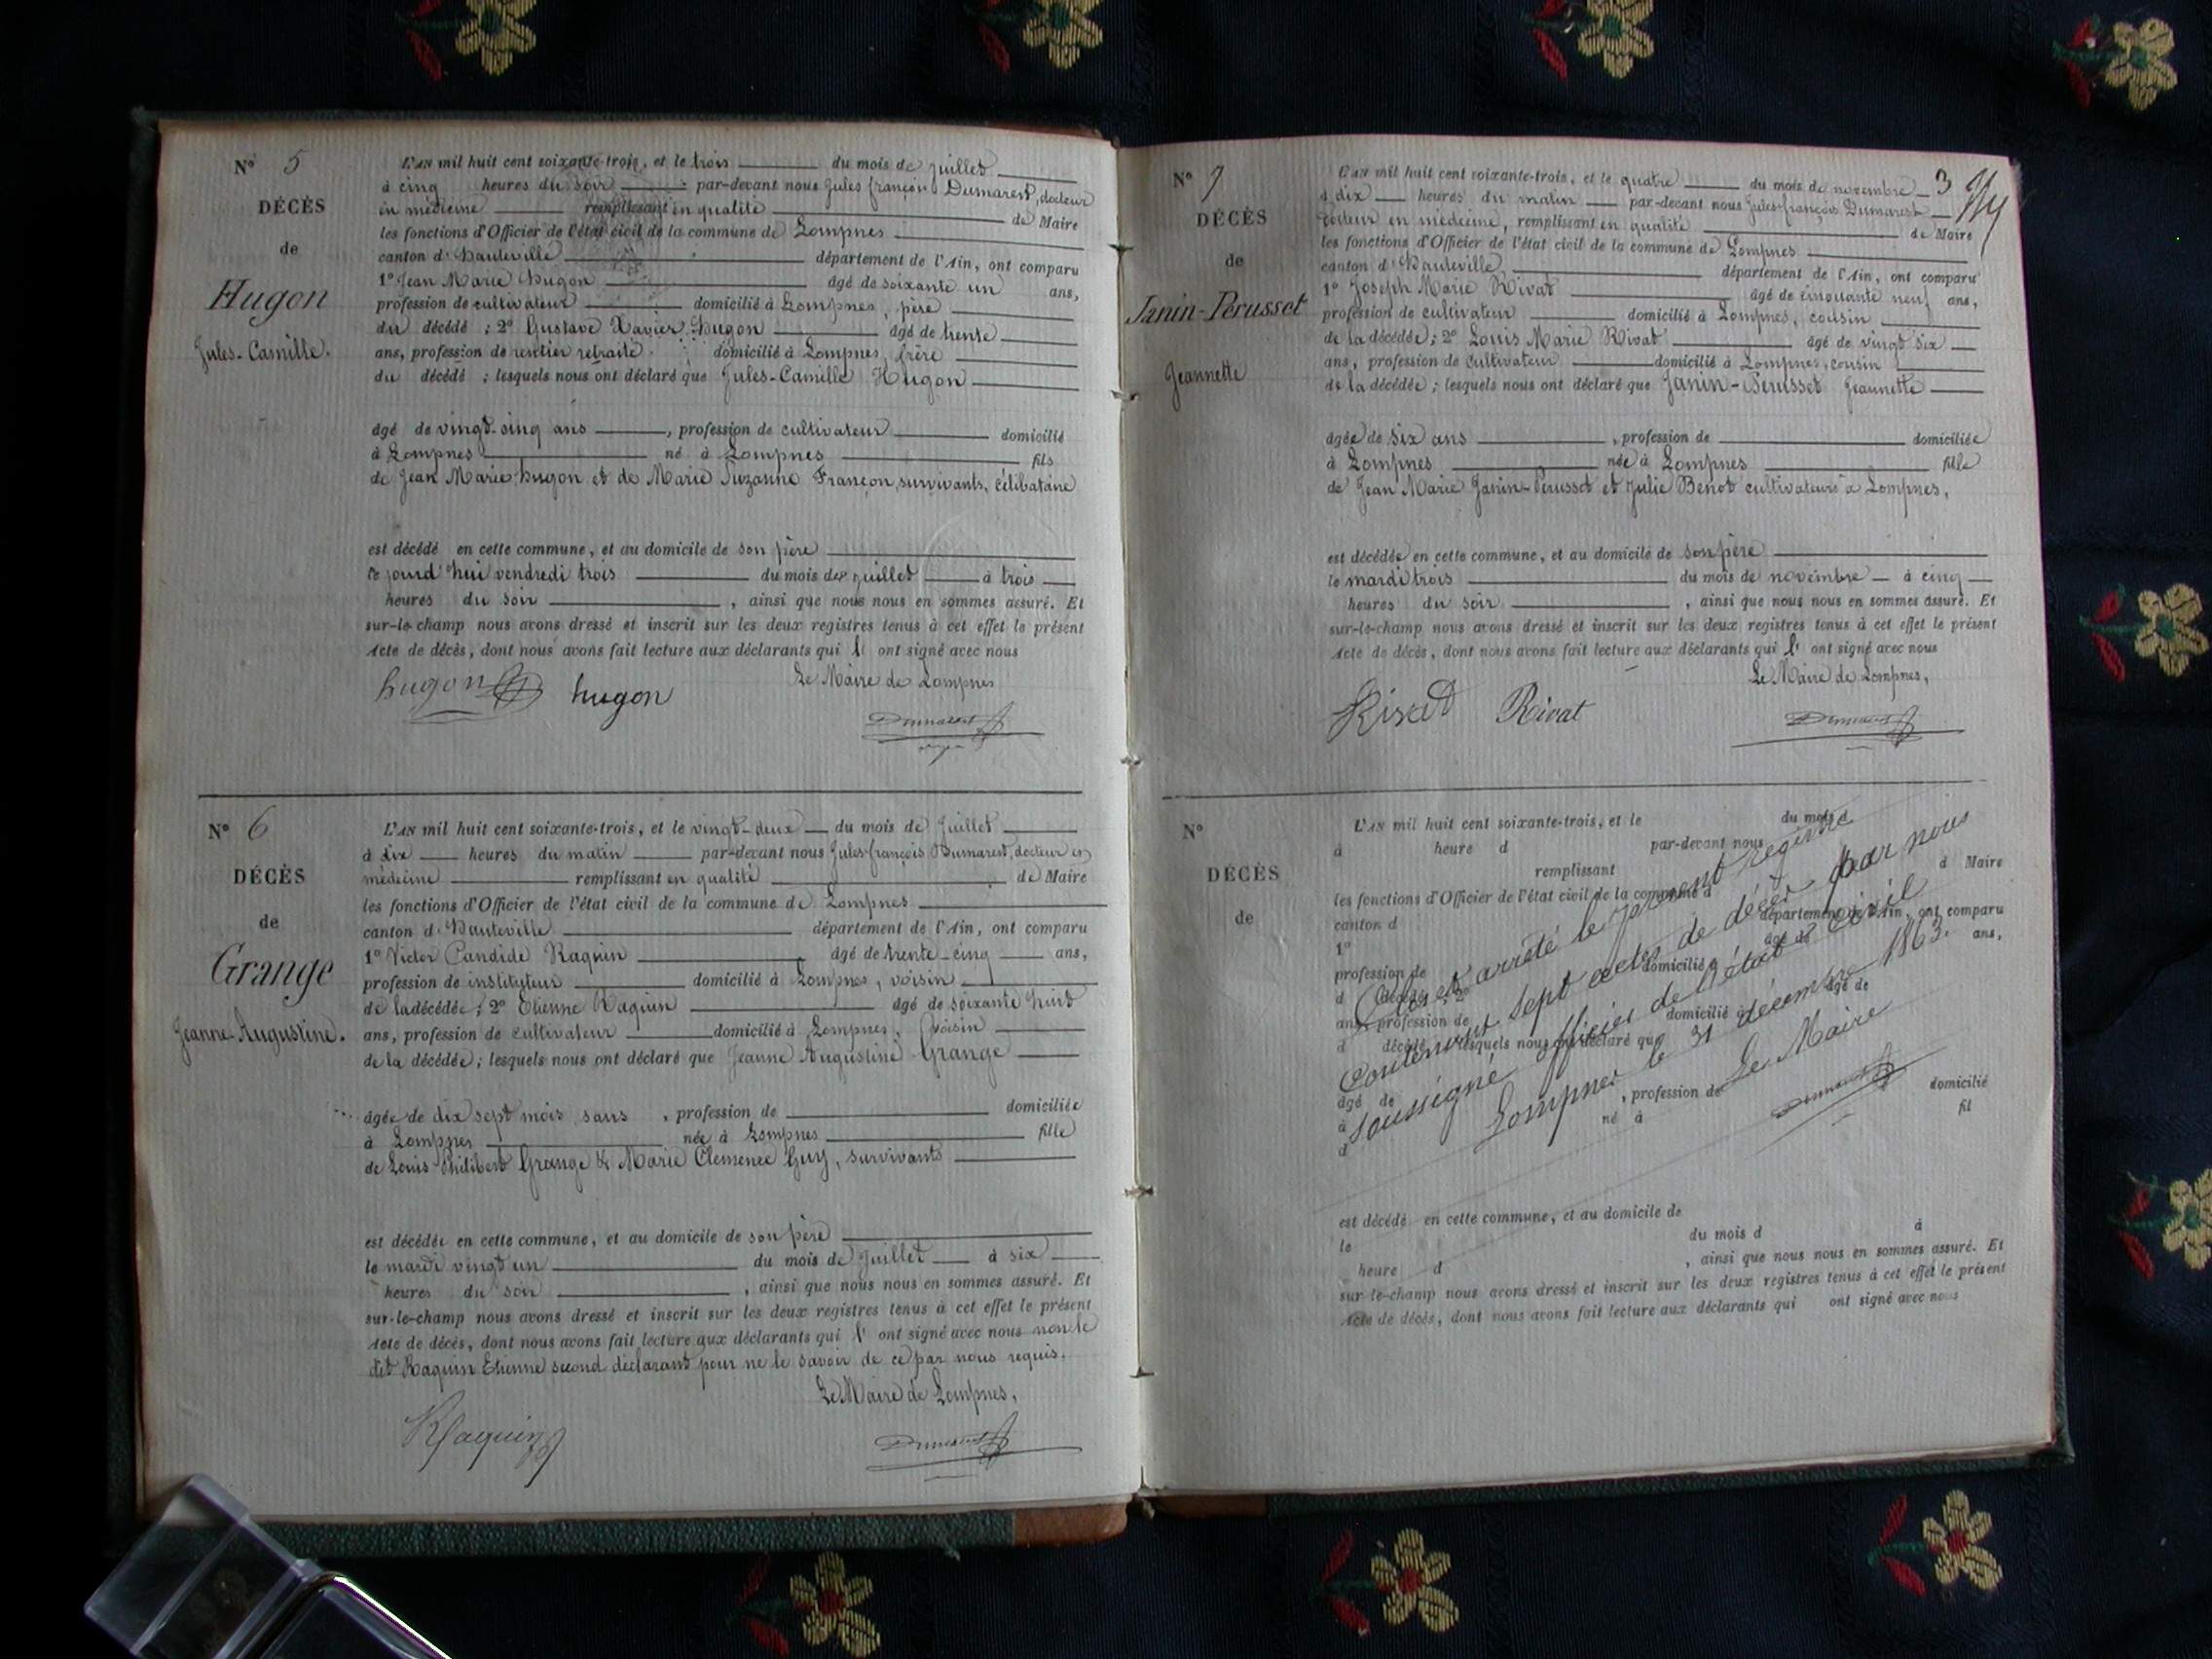 N° 5
DÉCÈS
de
Hugon
Jules-Camille.
L'AN mil huit cent soixante-trois, et le trois du mois de juillet
à cinq heures du soir par-devant nous Jules françois Dumarest, docteur
en médecine remplissant en qualité de Maire
les fonctions d'Officier de l'état civil de la commune de Lompnes
canton d'Hauteville département de l'Ain, ont comparu
1° Jean Marie Hugon âgé de soixante un ans,
profession de cultivateur domicilié à Lompnes, père
du décédé ; 2° Gustave Xavier Hugon âgé de trente
ans, profession de rentier retraité domicilié à Lompnes, frère
du décédé ; lesquels nous ont déclaré que Jules-Camille Hugon
âgé de vingt-sinq ans, profession de cultivateur domicilié
à Lompnes né à Lompnes fils
de Jean Marie hugon et de Marie Suzanne Françon, survivants, célibataire
est décédé en cette commune, et au domicile de son père
ce jourd'hui vendredi trois du mois de juillet à trois
heures du soir, ainsi que nous nous en sommes assuré. Et
sur-le-champ nous avons dressé et inscrit sur les deux registres tenus à cet effet le présent
Acte de décès, dont nous avons fait lecture aux déclarants qui l' ont signé avec nous
Le Maire de Lompnes
hugon hugon
Dumarest
N° 6
DÉCÈS
de
Grange
Jeanne-Augustine.
L'AN mil huit cent soixante-trois, et le vingt-deux du mois de Juillet
à dix heures du matin par-devant nous Jules françois Dumarest, docteur en
médecine remplissant en qualité de Maire
les fonctions d'Officier de l'état civil de la commune de Lompnes
canton d'Hauteville département de l'Ain, ont comparu
1° Victor Candide Raquin âgé de trente-cinq ans,
profession de instituteur domicilié à Lompnes, voisin
de la décédée ; 2° Etienne Raquin âgé de soixante huit
ans, profession de cultivateur domicilié à Lompnes, Voisin
de la décédée ; lesquels nous ont déclaré que Jeanne Augustine Grange
âgée de dix sept mois sans, profession de domiciliée
à Lompnes née à Lompnes fille
de Louis Philibert Grange & Marie Clemence Guy, survivants
est décédée en cette commune, et au domicile de son père
le mardi vingt un du mois de Juillet à six
heures du soir, ainsi que nous nous en sommes assuré. Et
sur-le-champ nous avons dressé et inscrit sur les deux registres tenus à cet effet le présent
Acte de décès, dont nous avons fait lecture aux déclarants qui l' ont signé avec nous non le
dit Raquin Etienne second déclarant pour ne le savoir de ce par nous requis.
Le Maire de Lompnes,
Raquin
Dumarest
N° 7
DÉCÈS
de
Janin-Pérusset
Jeannette
3
L'AN mil huit cent soixante-trois, et le quatre du mois de novembre
à dix heures du matin par-devant nous Jules-françois Dumarest
docteur en médecine, remplissant en qualité de Maire
les fonctions d'Officier de l'état civil de la commune de Lompnes
canton d'Hauteville département de l'Ain, ont comparu
1° Joseph Marie Rivat âgé de cinquante neuf ans,
profession de cultivateur domicilié à Lompnes, cousin
de la décédée ; 2° Louis Marie Rivat âgé de vingt six
ans, profession de cultivateur domicilié à Lompnes, cousin
de la décédée ; lesquels nous ont déclaré que Janin-Perusset Jeannette
âgée de six ans, profession de domiciliée
à Lompnes née à Lompnes fille
de Jean Marie Janin-Perusset et Julie Benot cultivateurs à Lompnes,
est décédée en cette commune, et au domicile de son père
le mardi trois du mois de novembre à cinq
heures du soir, ainsi que nous nous en sommes assuré. Et
sur-le-champ nous avons dressé et inscrit sur les deux registres tenus à cet effet le présent
Acte de décès, dont nous avons fait lecture aux déclarants qui l' ont signé avec nous
Le Maire de Lompnes,
Rivat Rivat
Dumarest
N°
DÉCÈS
de
L'AN mil huit cent soixante-trois, et le du mois d
à heure d par-devant nous
remplissant d Maire
les fonctions d'Officier de l'état civil de la commune d
canton d département de l'Ain, ont comparu
1° âgé de ans,
profession de domicilié à
d décédé ; 2° âgé de
ans, profession de domicilié à
d décédé ; lesquels nous ont déclaré que
âgé de, profession de domicilié
à né à fil
d
Clos et arrêté le présent registre
Contenant sept actes de décès par nous
soussigné officier de l'état civil
Lompnes le 31 décembre 1863.
Le Maire
Dumarest
est décédé en cette commune, et au domicile de
le du mois d à
heure d, ainsi que nous nous en sommes assuré. Et
sur-le-champ nous avons dressé et inscrit sur les deux registres tenus à cet effet le présent
Acte de décès, dont nous avons fait lecture aux déclarants qui ont signé avec nous